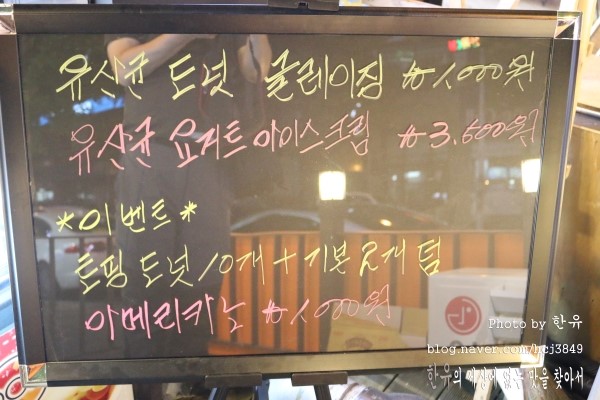 유산균 도넛 글레이징 ₩1,000원
유산균 요거트 아이스크림 ₩3,500원
*이벤트*
토핑 도넛 10개 + 기본 2개 덤
아메리카노 ₩1,000원
Photo by 한유
blog.naver.com/hcj3849
한유의 세상에 없는 맛을 찾아서